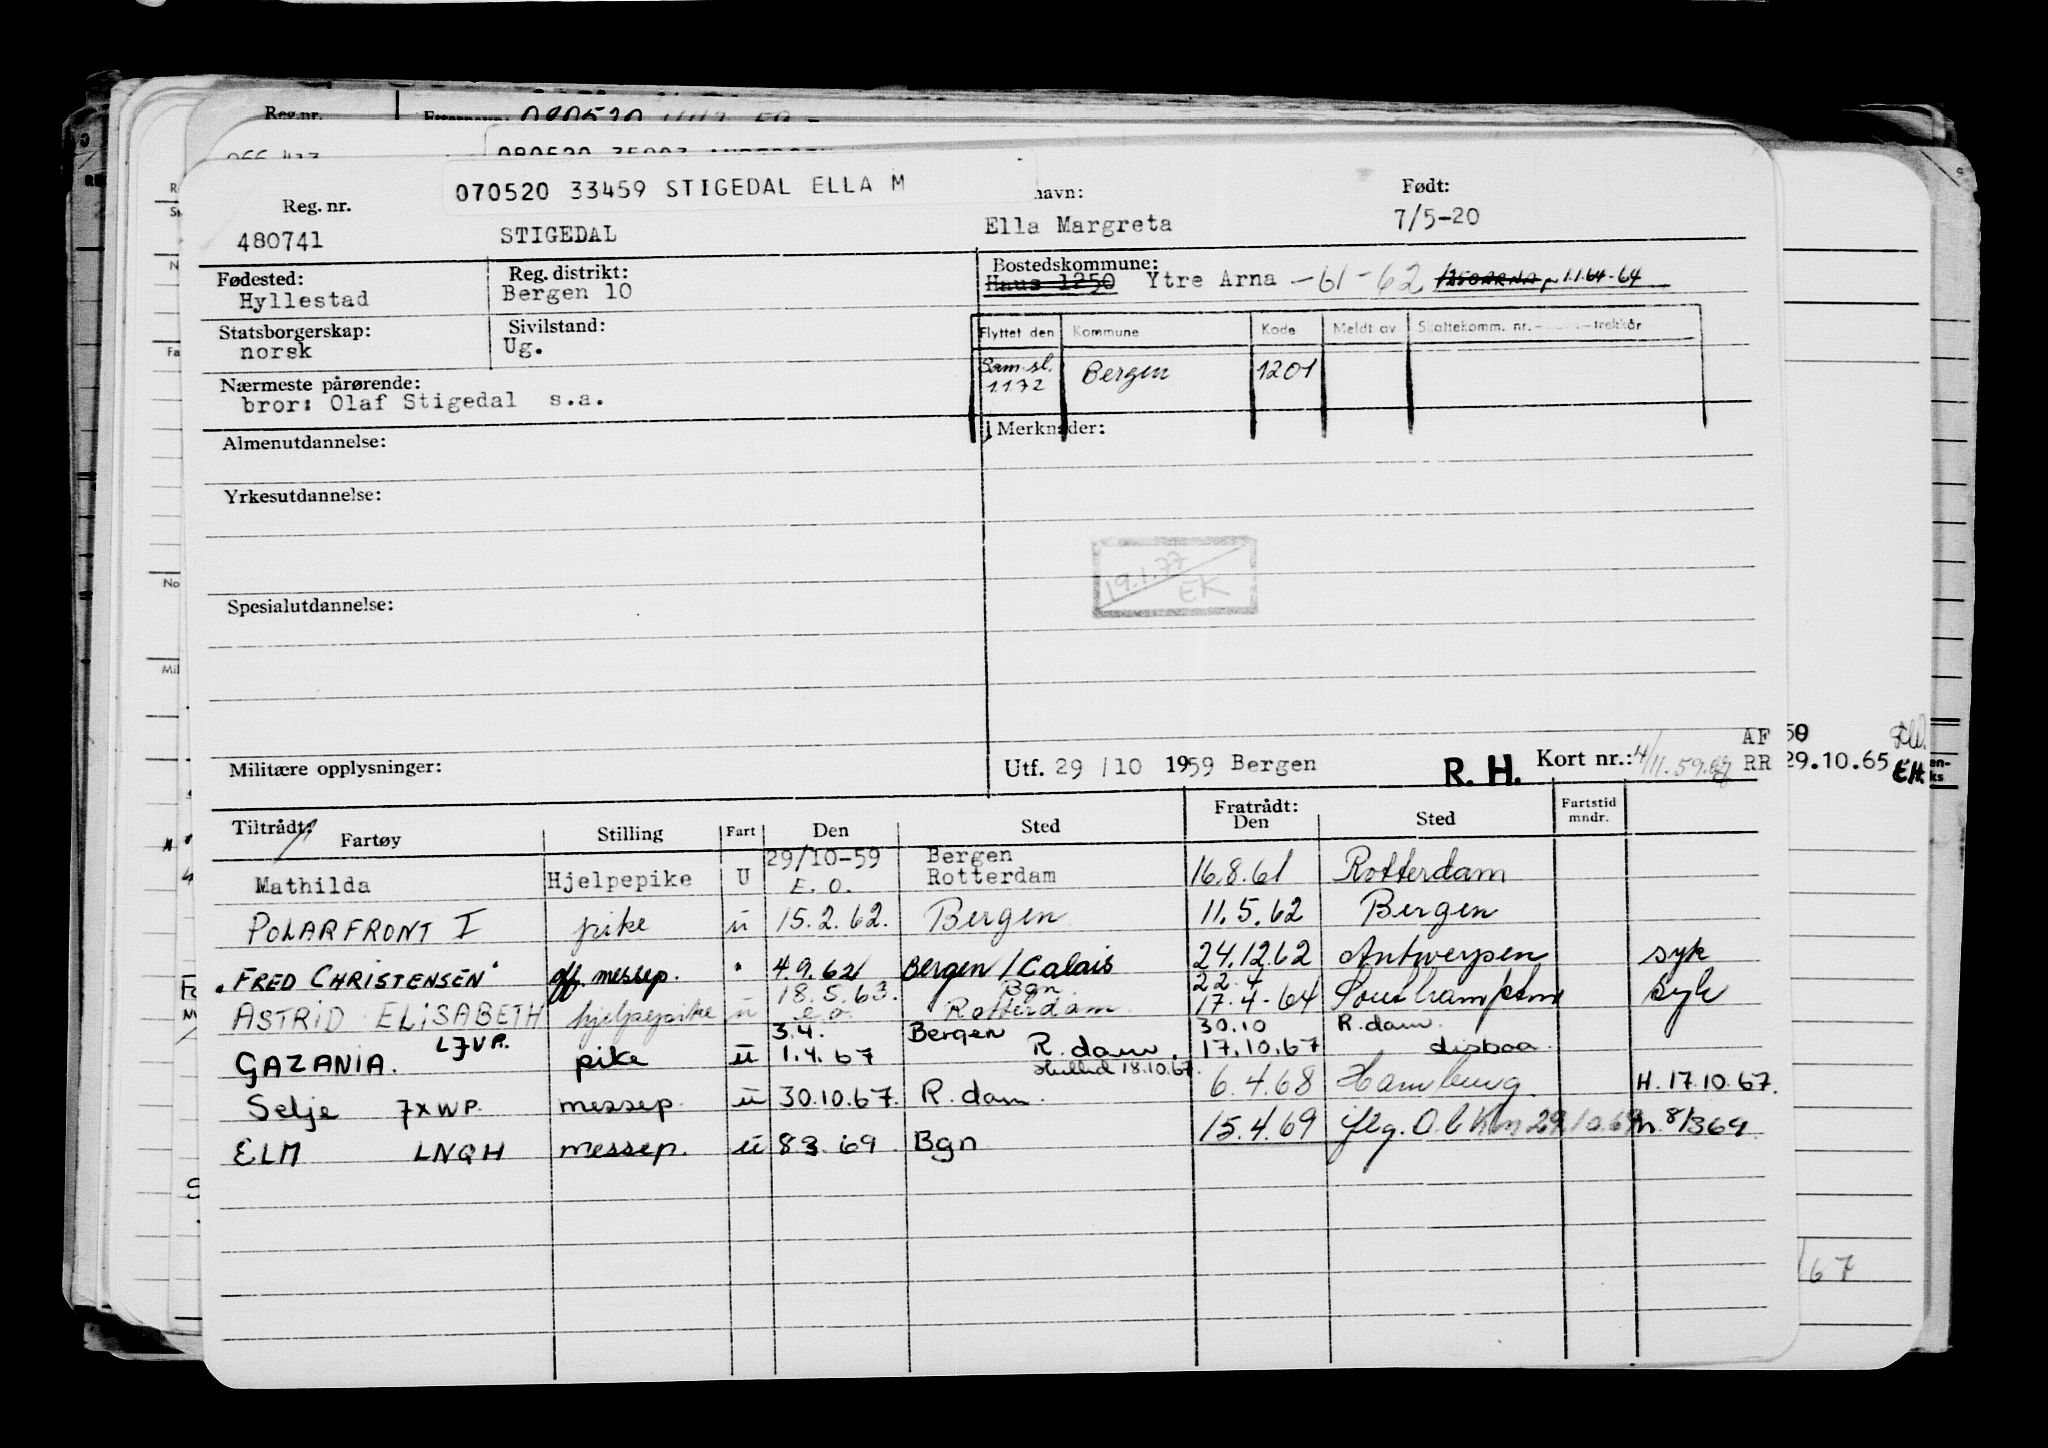 Reg.nr.
070520 33459 STIGEDAL ELLA M
navn:
Født:
Reg. nr.
480741
STIGEDAL
Ella Margreta
7/5-20
Fødested:
Hyllestad
Reg. distrikt:
Bergen 10
Bostedskommune:
Haus 1250 Ytre Arna -61-62 1250 ARNA 1.1.64-64
Statsborgerskap:
norsk
Sivilstand:
Ug.
Flyttet den Kommune Kode Meldt av Skattekomm. nr. trekkår
Sam.sl. 1.1.72 Bergen 1201
Nærmeste pårørende:
bror: Olaf Stigedal s.a.
Almenutdannelse:
Merknader:
Yrkesutdannelse:
19.1.77
EK
Spesialutdannelse:
Militære opplysninger:
Utf. 29/10 1959 Bergen
R. H.
Kort nr.:
AF 50
RR 29.10.65 EH.
Tiltrådt:
Fartøy Stilling Fart Den Sted
Fratrådt:
Den Sted Fartstid mndr.
Mathilda Hjelpepike U 29/10-59 E. O. Bergen Rotterdam 16.8.61 Rotterdam
POLARFRONT I pike u 15.2.62. Bergen 11.5.62 Bergen
"FRED CHRISTENSEN" off. messep. " 4.9.62 Bergen/Calais 24.12.62 Antwerpen syk
ASTRID ELISABETH hjelpepike u 18.5.63. e.o. Bgn Rotterdam 22.4 17.4-64 Southampton Syk
GAZANIA. LJVR. pike u 3.4. 1.4.67 Bergen R.dam. 30.10 17.10.67 R.dam. Lisboa
18.10.67.
Selje JXWP. messep. u 30.10.67. R.dam. 6.4.68 Hamburg H. 17.10.67.
ELM LNQH messep. u 8.3.69 Bgn 15.4.69 iflg. 29.10.69 m. 8/369
/67